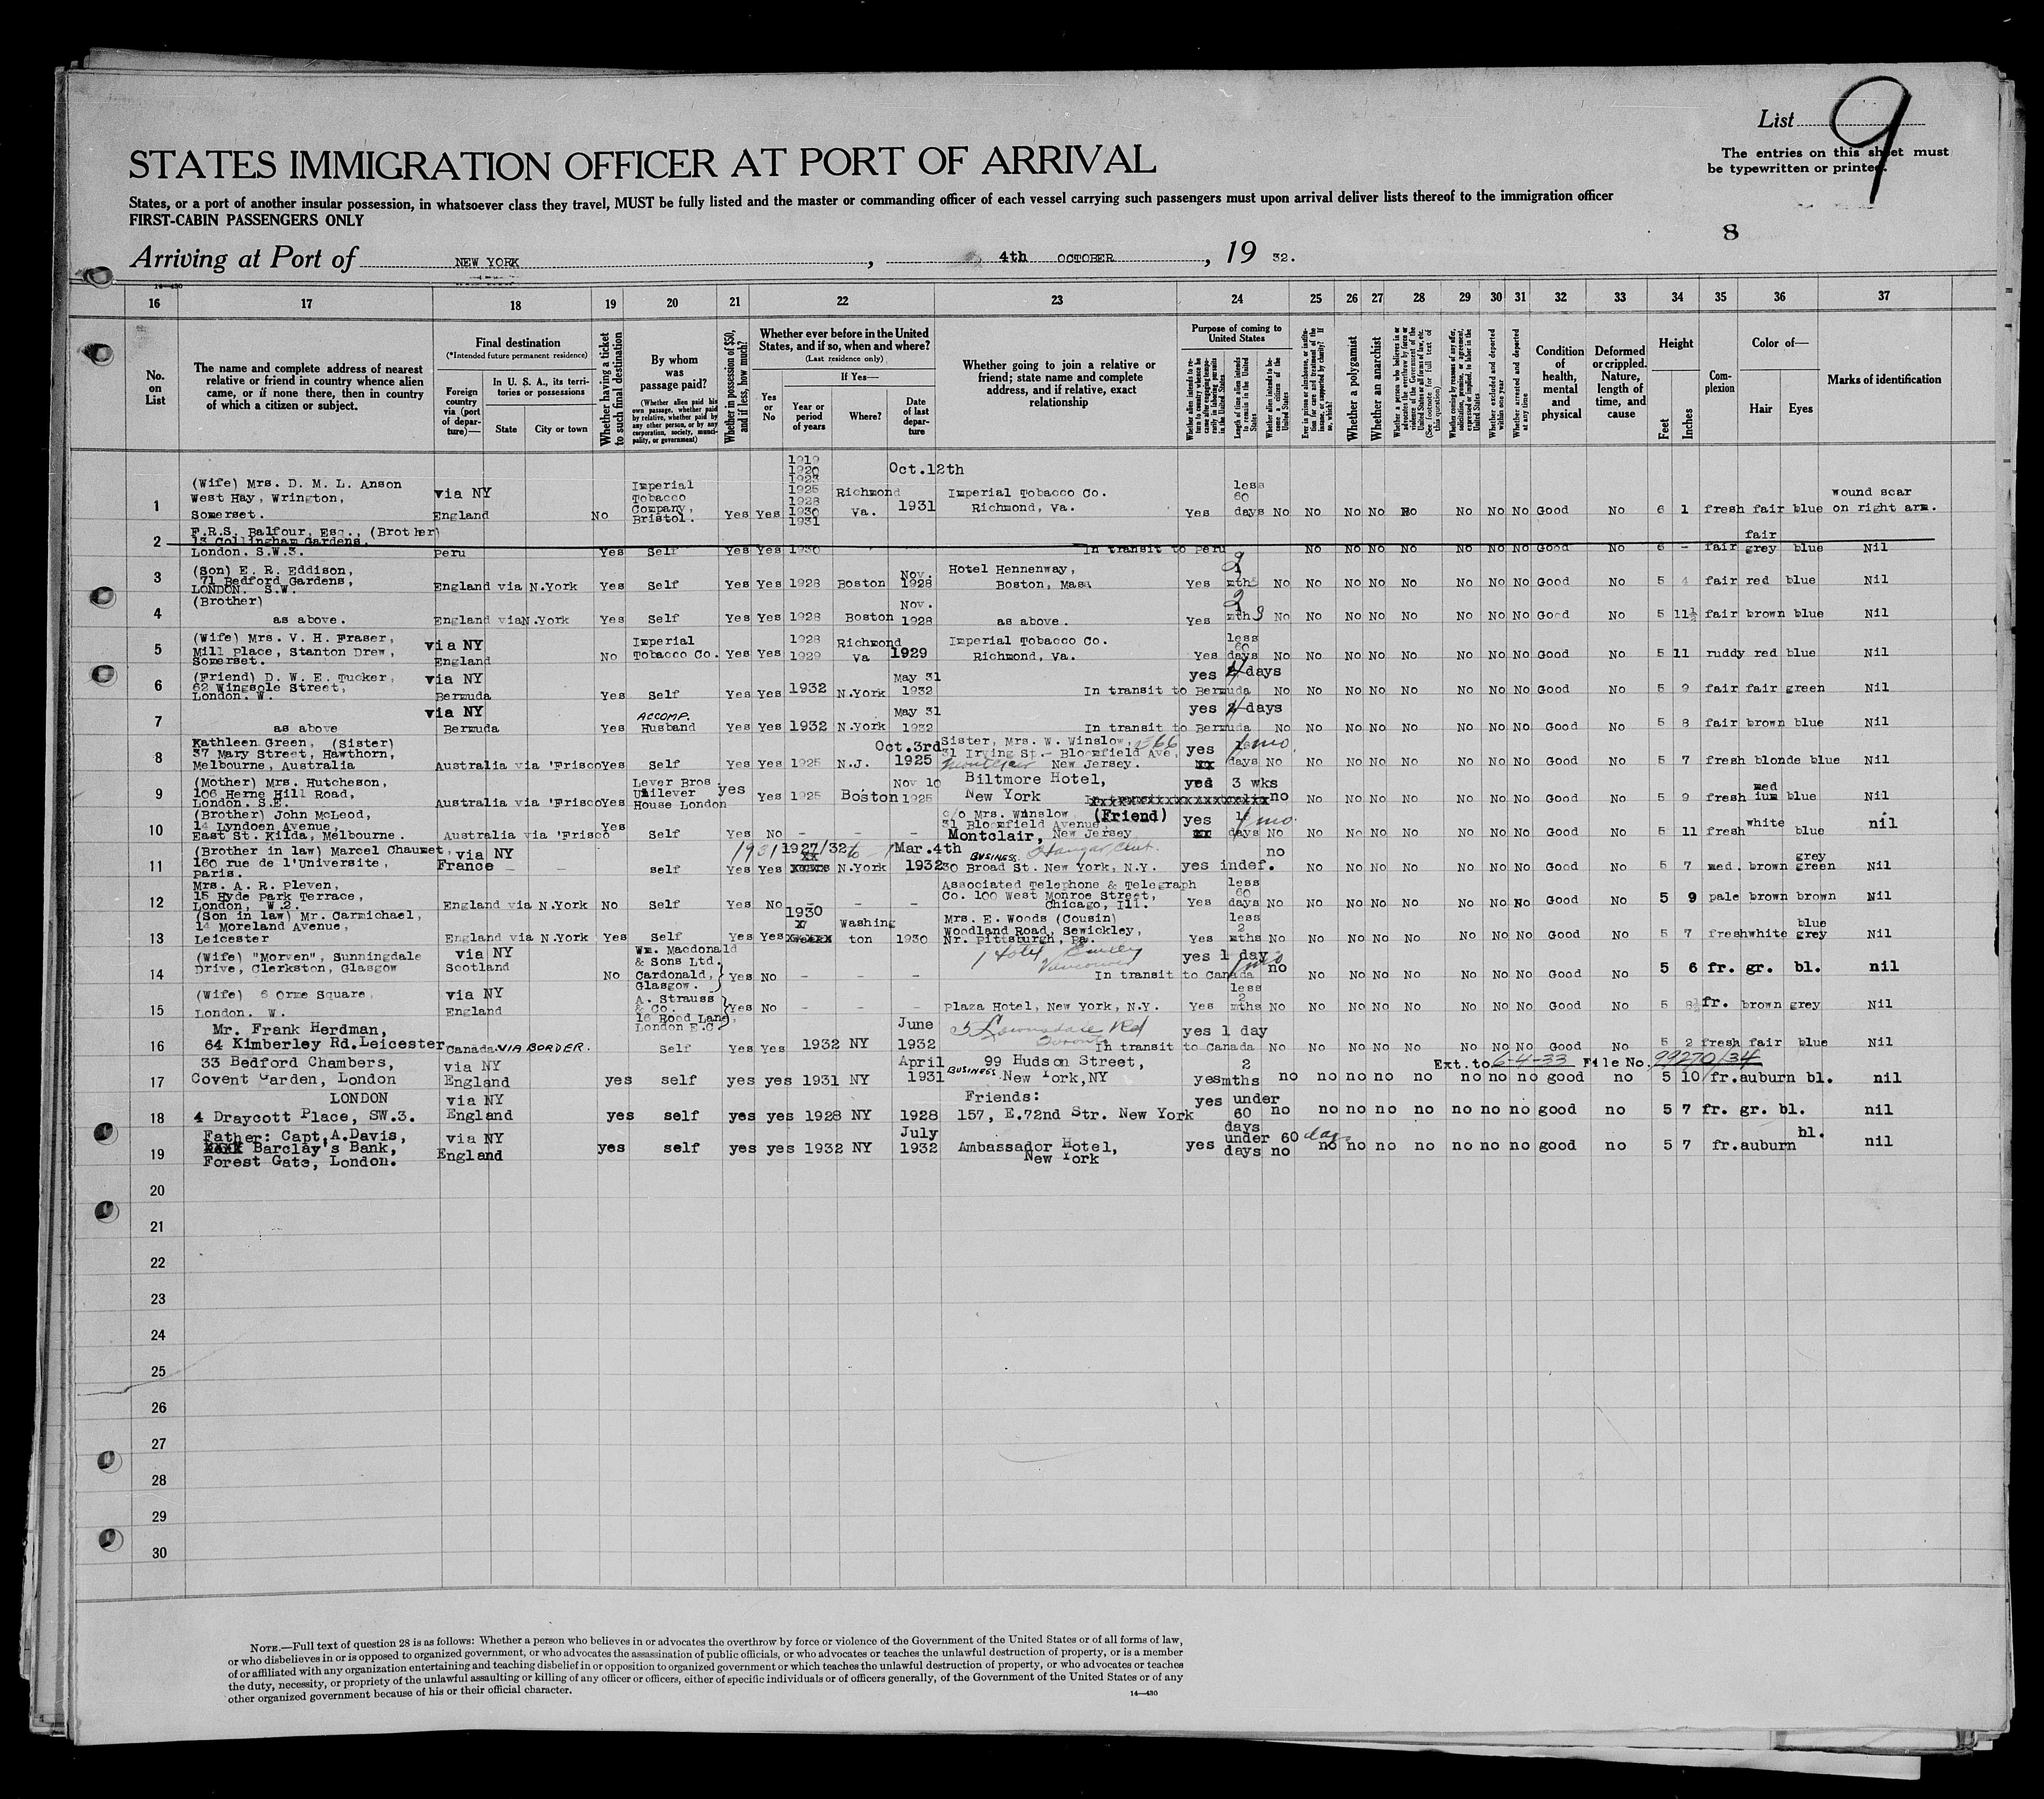 List 9
STATES IMMIGRATION OFFICER AT PORT OF ARRIVAL
The entries on this sheet must
be typewritten or printed.
States, or a port of another insular possession, in whatsoever class they travel, MUST be fully listed and the master or commanding officer of each vessel carrying such passengers must upon arrival deliver lists thereof to the immigration officer
FIRST-CABIN PASSENGERS ONLY
8
Arriving at Port of NEW YORK, 4th OCTOBER, 19 32.
14—430
16 17 18 19 20 21 22 23 24 25 26 27 28 29 30 31 32 33 34 35 36 37
No. on List
The name and complete address of nearest relative or friend in country whence alien came, or if none there, then in country of which a citizen or subject.
Final destination
(*Intended future permanent residence)
Foreign country via (port of departure)—
In U. S. A., its territories or possessions
State City or town
Whether having a ticket to such final destination
By whom was passage paid?
(Whether alien paid his own passage, whether paid by relative, whether paid by any other person, or by any corporation, society, municipality, or government)
Whether in possession of $50, and if less, how much?
Whether ever before in the United States, and if so, when and where?
(Last residence only)
If Yes—
Yes or No
Year or period of years
Where?
Date of last departure
Whether going to join a relative or friend; state name and complete address, and if relative, exact relationship
Purpose of coming to United States
Length of time alien intends to remain in the United States
Whether alien intends to become a citizen of the United States
Whether a polygamist
Whether an anarchist
Whether excluded and deported within one year
Whether arrested and deported at any time
Condition of health, mental and physical
Deformed or crippled. Nature, length of time, and cause
Height
Feet Inches
Complexion
Color of—
Hair Eyes
Marks of identification
1 (Wife) Mrs. D. M. L. Anson West Hay, Wrington, Somerset. via NY England No Imperial Tobacco Company, Bristol. Yes Yes 1919 1920 1923 1925 1928 1930 1931 Richmond Va. Oct.12th 1931 Imperial Tobacco Co. Richmond, Va. Yes less 60 days No No No No No No No No Good No 6 1 fresh fair blue wound scar on right arm.
2 F.R.S. Balfour, Esq., (Brother) 13 Collingham Gardens. London. S.W.3. Peru Yes Self Yes Yes 1930 In transit to Peru No No No No No No No Good No 6 - fair fair grey blue Nil
3 (Son) E. R. Eddison, 71 Bedford Gardens, LONDON. S.W. England via N.York Yes Self Yes Yes 1928 Boston Nov. 1928 Hotel Hennenway, Boston, Mass Yes 2 mths No No No No No No No No Good No 5 4 fair red blue Nil
4 (Brother) as above. England via N.York Yes Self Yes Yes 1928 Boston Nov. 1928 as above. Yes 2 mths No No No No No No No No Good No 5 11½ fair brown blue Nil
5 (Wife) Mrs. V. H. Fraser, Mill Place, Stanton Drew, Somerset. via NY England No Imperial Tobacco Co. Yes Yes 1928 1929 Richmond Va 1929 Imperial Tobacco Co. Richmond, Va. Yes less 60 days No No No No No No No No Good No 5 11 ruddy red blue Nil
6 (Friend) D. W. E. Tucker, 62 Wingsole Street, London. W. via NY Bermuda Yes Self Yes Yes 1932 N.York May 31 1932 In transit to Bermuda yes 4 days No No No No No No No No Good No 5 9 fair fair green Nil
7 as above via NY Bermuda Yes ACCOMP. Husband Yes Yes 1932 N.York May 31 1932 In transit to Bermuda yes 4 days No No No No No No No No Good No 5 8 fair brown blue Nil
8 Kathleen Green, (Sister) 37 Mary Street, Hawthorn, Melbourne, Australia Australia via 'Frisco Yes Self Yes Yes 1925 N.J. Oct.3rd 1925 Sister, Mrs. W. Winslow, 31 Irving St.- Bloomfield Ave, Montclair New Jersey. 366 yes xx 1 mo. days No No No No No No No No Good No 5 7 fresh blonde blue Nil
9 (Mother) Mrs. Hutcheson, 106 Herne Hill Road, London. S.E. Australia via 'Frisco Yes Lever Bros. Unilever House London yes Yes 1925 Boston Nov 10 1925 Biltmore Hotel, New York yes 3 wks no No No No No No No No Good No 5 9 fresh medium blue Nil
10 (Brother) John McLeod, 14 Lyndoen Avenue, East St. Kilda, Melbourne. Australia via 'Frisco Yes Self Yes No - - - c/o Mrs. Winslow (Friend) 31 Bloomfield Avenue, Montclair, New Jersey yes xx 1 mo. days No No No No No No No No Good No 5 11 fresh white blue nil
11 (Brother in law) Marcel Chaumet, 160 rue de l'Universite, Paris. via NY France - - self Yes Yes 1931 1927/32 N.York Mar.4th 1932 BUSINESS 30 Broad St. New York, N.Y. yes indef. no No No No No No No No Good No 5 7 med. brown grey green Nil
12 Mrs. A. R. Pleven, 15 Hyde Park Terrace, London, W.2. England via N.York No Self Yes No - - - Associated Telephone & Telegraph Co. 100 West Monroe Street, Chicago, Ill. Yes less 60 days No No No No No No No No Good No 5 9 pale brown brown Nil
13 (Son in law) Mr. Carmichael, 14 Moreland Avenue, Leicester England via N.York Yes Self Yes Yes 1930 Washington 1930 Mrs. E. Woods (Cousin) Woodland Road, Sewickley, Nr. Pittsburgh, Pa. Yes less 2 mths No No No No No No No No Good No 5 7 fresh white blue grey Nil
14 (Wife) "Morven", Sunningdale Drive, Clerkston, Glasgow via NY Scotland No Wm. Macdonald & Sons Ltd. Cardonald, Glasgow. Yes No - - - Hotel Vancouver In transit to Canada yes 1 day 1 mo no No No No No No No No Good No 5 6 fr. gr. bl. nil
15 (Wife) 6 Orme Square, London. W. via NY England A. Strauss & Co. 16 Rood Lane, London E.C. Yes No - - - Plaza Hotel, New York, N.Y. Yes less 2 mths No No No No No No No No Good No 5 8½ fr. brown grey Nil
16 Mr. Frank Herdman, 64 Kimberley Rd. Leicester Canada VIA BORDER. Self Yes Yes 1932 NY June 1932 Toronto In transit to Canada yes 1 day No No No No No No No No Good No 5 2 fresh fair blue Nil
Ext. to 6-4-33 File No. 99270/34
17 33 Bedford Chambers, Covent Garden, London via NY England yes self yes yes 1931 NY April 1931 BUSINESS 99 Hudson Street, New York, NY yes 2 mths no no no no no no no no good no 5 10 fr. auburn bl. nil
18 LONDON 4 Draycott Place, SW.3. via NY England yes self yes yes 1928 NY 1928 Friends: 157, E.72nd Str. New York yes under 60 days no no no no no no no no good no 5 7 fr. gr. bl. nil
19 Father: Capt. A. Davis, Barclay's Bank, Forest Gate, London. via NY England yes self yes yes 1932 NY July 1932 Ambassador Hotel, New York yes under 60 days days no no no no no no no no good no 5 7 fr. auburn bl. nil
20
21
22
23
24
25
26
27
28
29
30
NOTE.—Full text of question 28 is as follows: Whether a person who believes in or advocates the overthrow by force or violence of the Government of the United States or of all forms of law,
or who disbelieves in or is opposed to organized government, or who advocates the assassination of public officials, or who advocates or teaches the unlawful destruction of property, or is a member
of or affiliated with any organization entertaining and teaching disbelief in or opposition to organized government or which teaches the unlawful destruction of property, or who advocates or teaches
the duty, necessity, or propriety of the unlawful assaulting or killing of any officer or officers, either of specific individuals or of officers generally, of the Government of the United States or of any
other organized government because of his or their official character.
14—430